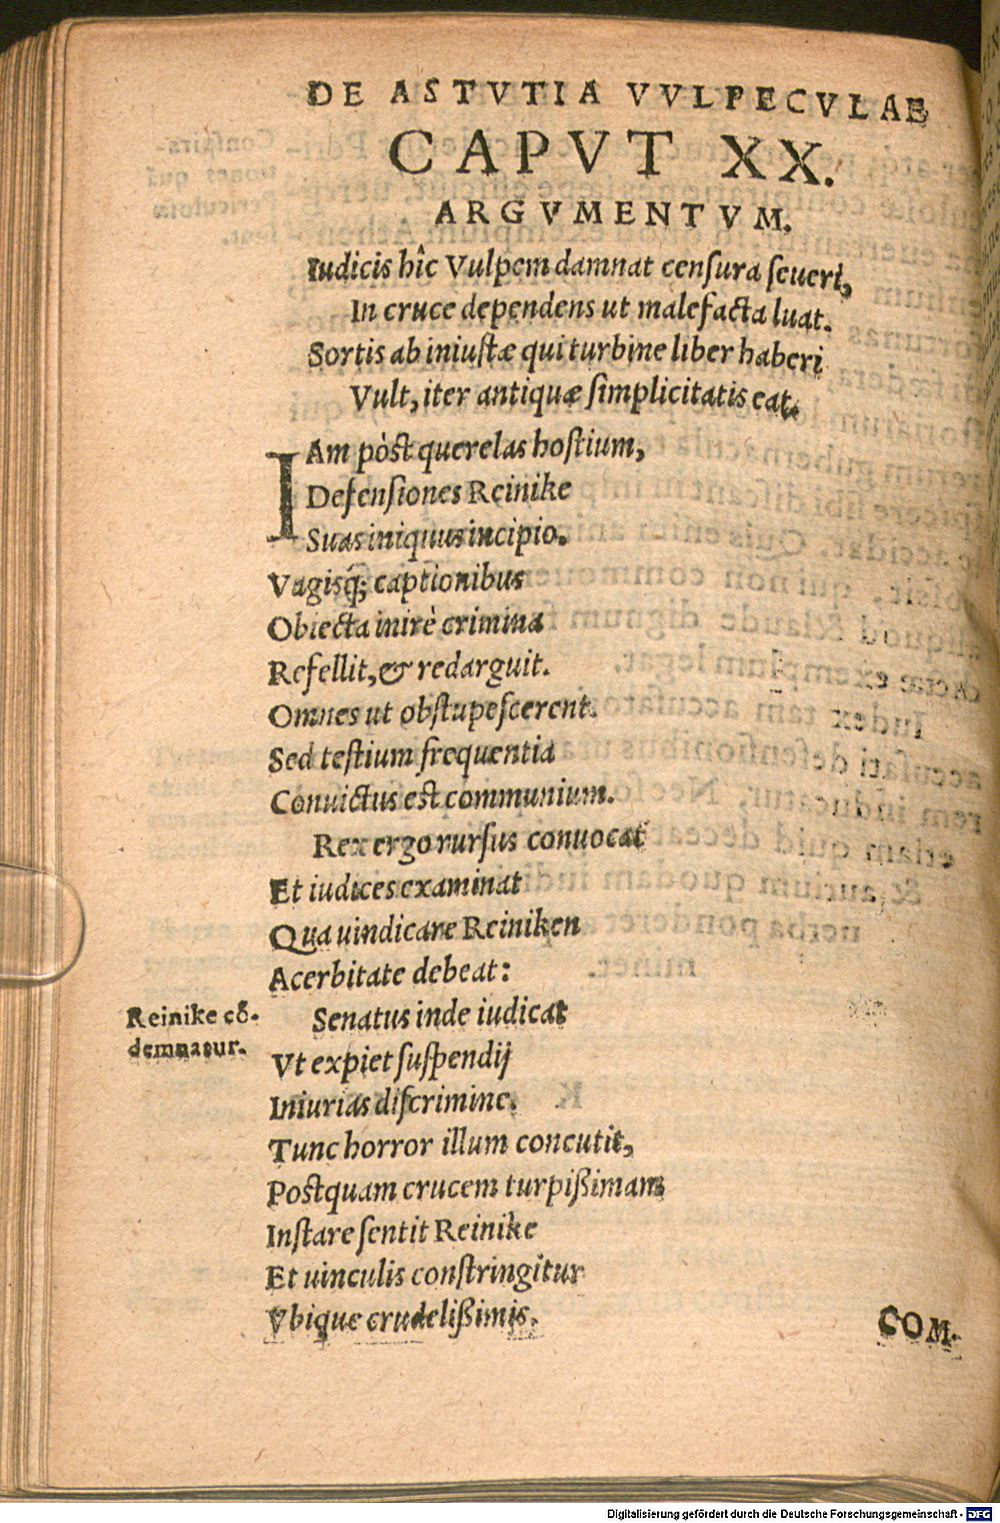 DE ASTVTIA VVLPECVLAE
CAPVT XX.
ARGVMENTVM.
Iudicis hîc Vulpem damnat censura seueri,
In cruce dependens ut malefacta luat.
Sortis ab iniustæ qui turbine liber haberi
Vult, iter antiquæ simplicitatis eat.
IAm pòst querelas hostium,
Defensiones Reinike
Suas iniquus incipio.
Vagisq́; captionibus
Obiecta mirè crimina
Refellit, & redarguit.
Omnes ut obstupescerent.
Sed testium frequentia
Conuictus est communium.
Rex ergo rursus conuocat
Et iudices examinat
Qua uindicare Reiniken
Acerbitate debeat:
Reinike cõ-
demnatur.
Senatus inde iudicat
Vt expiet suspendij
Iniurias discrimine.
Tunc horror illum concutit,
Postquam crucem turpißimam
Instare sentit Reinike
Et uinculis constringitur
Vbique crudelißimis.
COM-
Digitalisierung gefördert durch die Deutsche Forschungsgemeinschaft - DFG